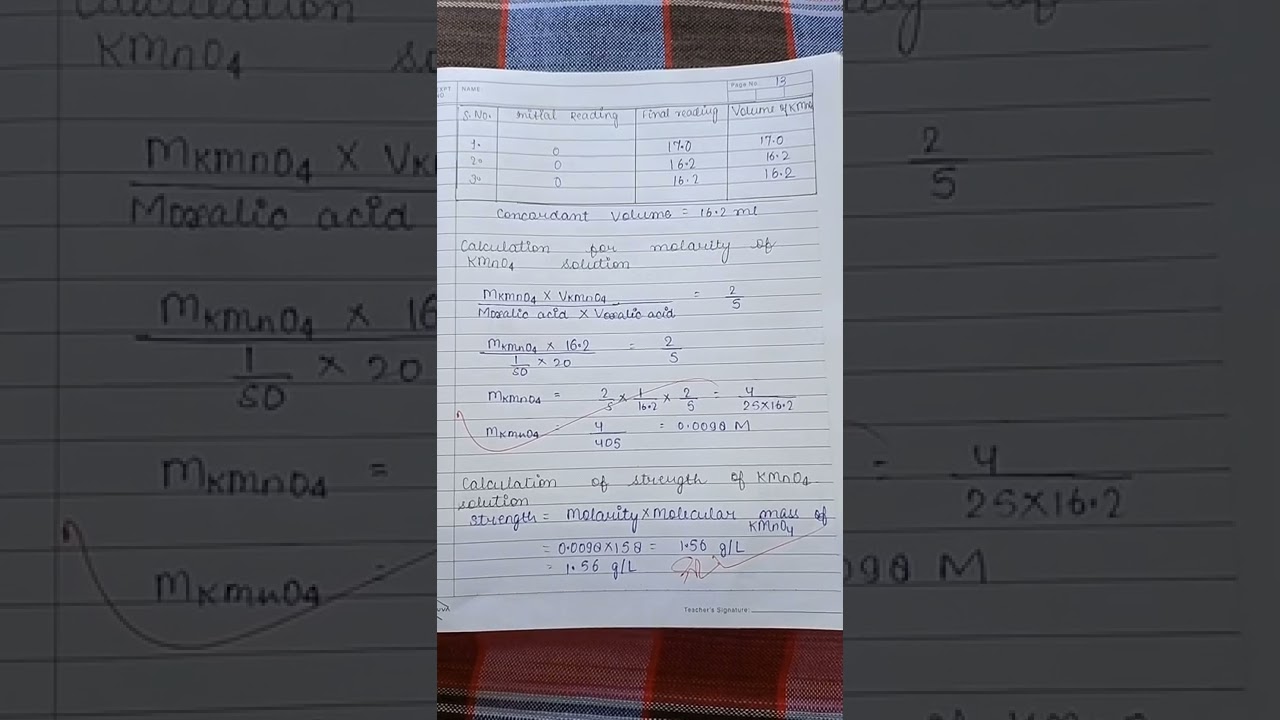 EXPT NO
NAME:
Page No. 13
S.No. Initial Reading Final reading Volume of KMnO4
1. 0 17.0 17.0
2. 0 16.2 16.2
3. 0 16.2 16.2
Concordant Volume = 16.2 ml
Calculation for molarity of
KMnO4 solution
MKMnO4 × VKMnO4 / Moxalic acid × Voxalic acid = 2/5
MKMnO4 × 16.2 / 1/50 × 20 = 2/5
MKMnO4 = 2/5 × 1/16.2 × 2/5 = 4/25×16.2
MKMnO4 = 4/405 = 0.0098 M
Calculation of strength of KMnO4
solution
Strength = Molarity × Molecular mass of
KMnO4
= 0.0098×158 = 1.56 g/L
= 1.56 g/L
Teacher's Signature: